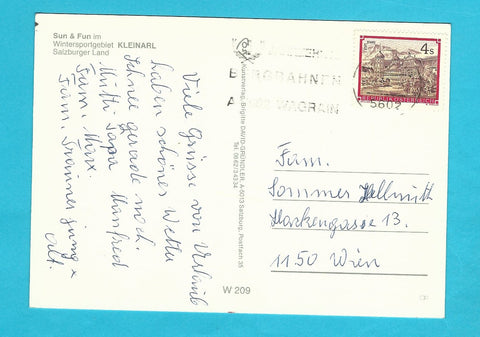 Sun & Fun im
Wintersportgebiet KLEINARL
Salzburger Land
Viele Grüsse vom Urlaub
haben schönes Wetter
Schnee gerade noch.
Mutti Papa Manfred
Fam. Marx.
Fam.
jung +
alt.
Kunstverlag, Brigitte DAVID-GRÜNDLER, A-5013 Salzburg, Postfach 35
Tel. 0662/34334
W 209
BERGBAHNEN
WAGRAIN
5602
4 S
REPUBLIK ÖSTERREICH
Fam.
Sommer Hellmuth
Hackengasse 13.
1150 Wien